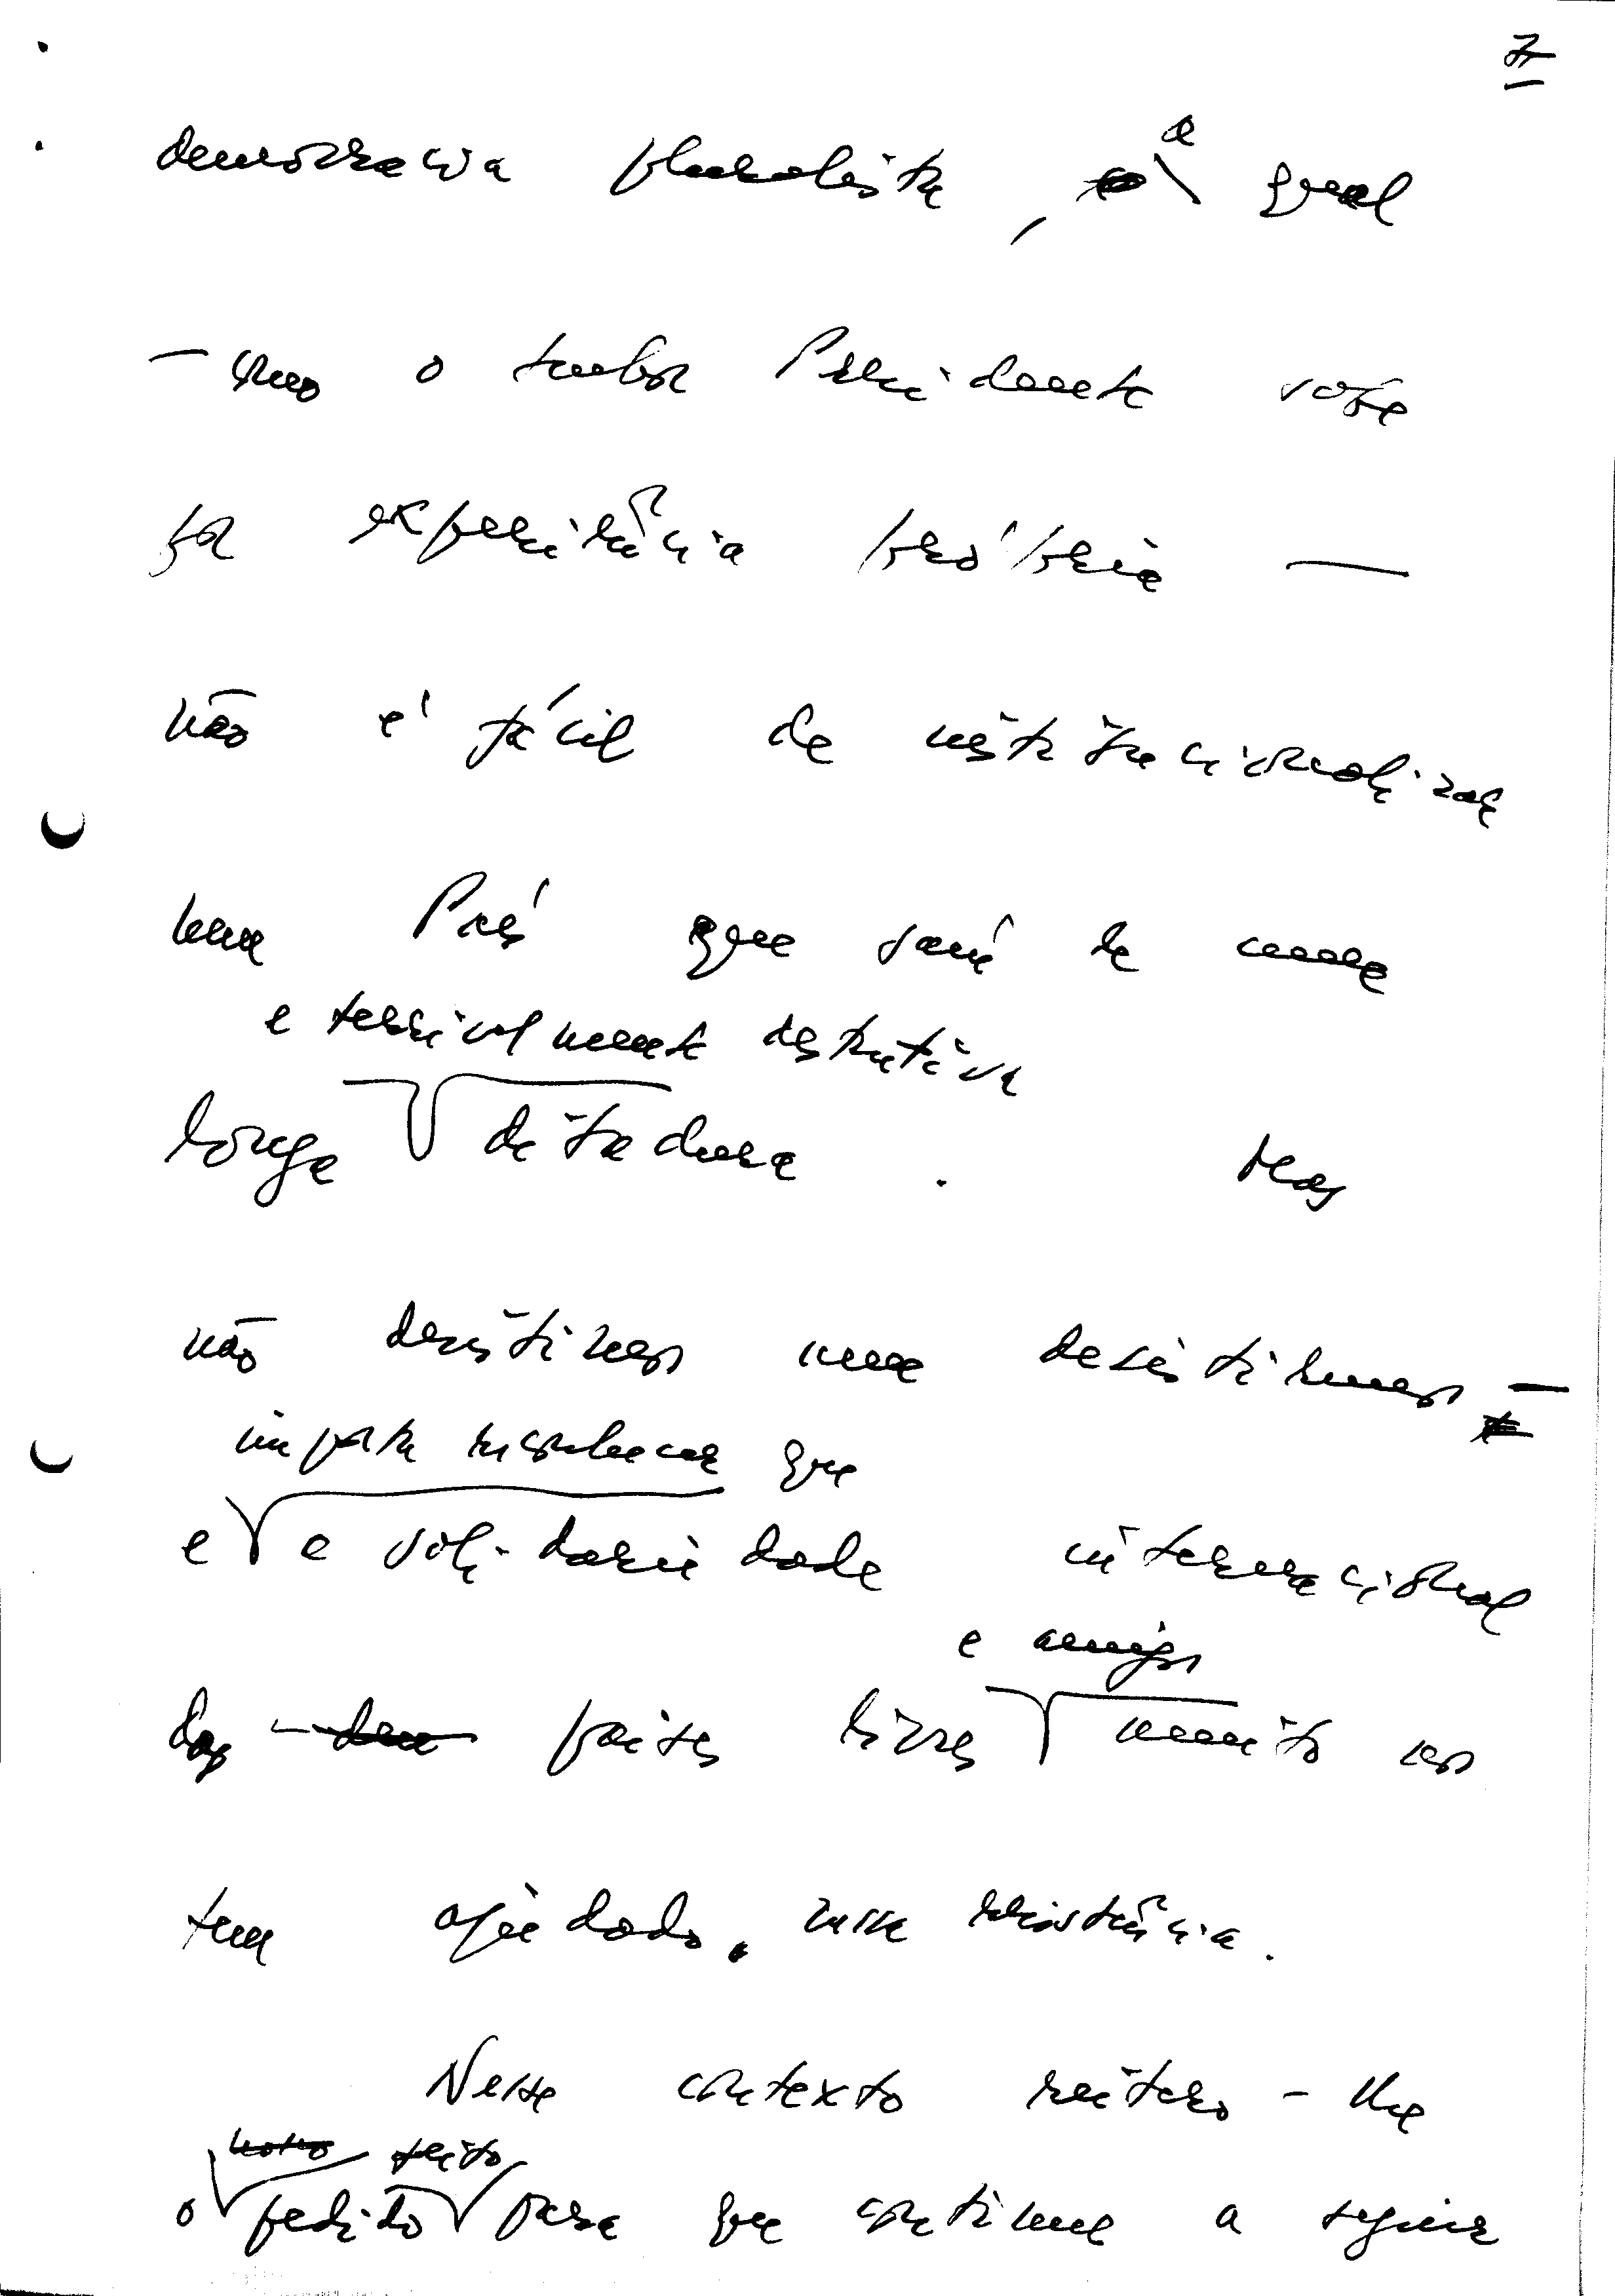 7
democracia pluralista, a qual
— como o senhor Presidente sabe
por experiência própria —
não é fácil de institucionalizar
num País que saiu de uma
e terrivelmente destrutiva
longa ditadura. Mas
não desistimos nem desistiremos —
importa reconhecer que
e a solidariedade internacional
e amigos
dos países livres muito nos
tem ajudado, nessa resistência.
Neste contexto reitero-lhe
novo feito
o pedido para que continue a seguir